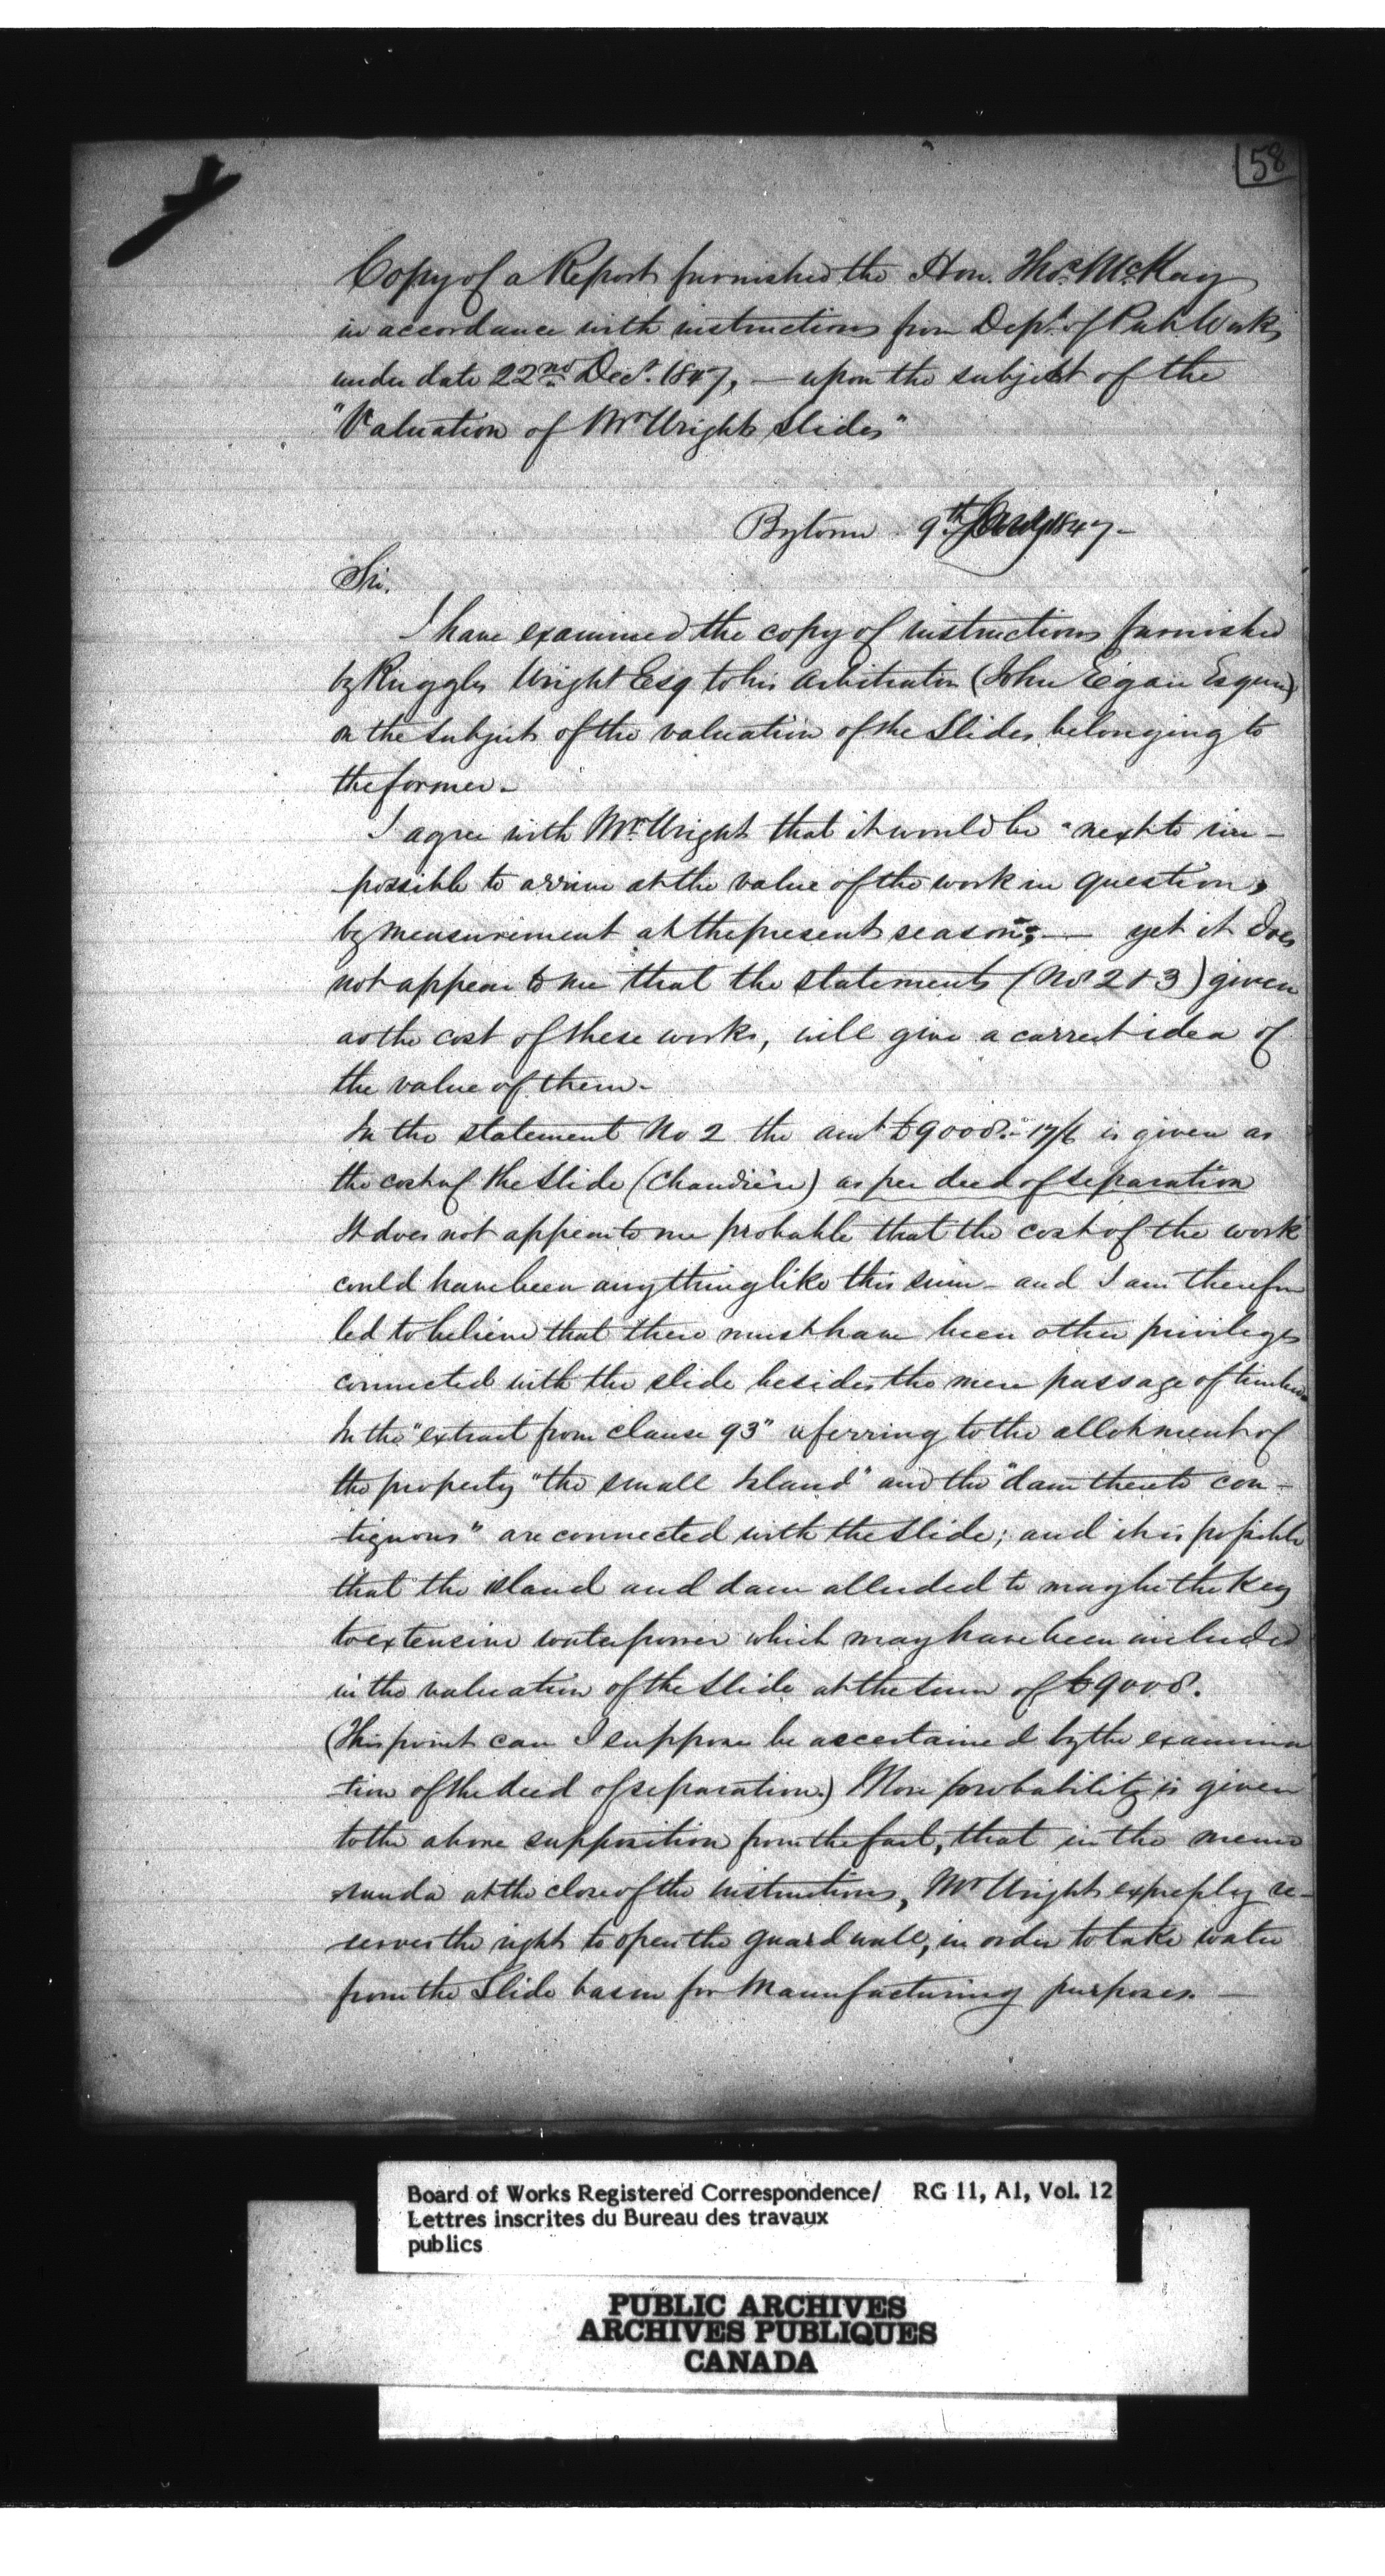 58
Copy of a Report furnished the Hon. Thos. McKay
in accordance with instructions from Dept. of Pub Works
under date 22nd Dec. 1847, — upon the subject of the
"Valuation of Mr Wrights Slides"
Bytown 9th Jany 1847 -
Sir.
I have examined the copy of instructions furnished
by Ruggles Wright Esq to his Arbitrator (John Egan Esquire)
on the subject of the valuation of the Slides belonging to
the former -
I agree with Mr. Wright that it would be "next to im-
-possible to arrive at the value of the work in question,
by measurement at the present season; — yet it does
not appear to me that the statements (Nos 2 & 3) given
as the cost of these works, will give a correct idea of
the value of them -
In the statement No 2 the amt £9008.-17/6 is given as
the cost of the Slide (Chaudière) as per deed of separation
It does not appear to me probable that the cost of the work
could have been anything like this sum - and I am therefore
led to believe that there must have been other privileges
connected with the slide besides the mere passage of timber.
In the "extract from clause 93" referring to the allotment of
the property "the small Island" and the "dam thereto con-
-tiguous" are connected with the Slide; and it is possible
that the island and dam alluded to may be the key
to extensive water power which may have been included
in the valuation of the Slide at the sum of £9008.
(This point can I suppose be ascertained by the examina
-tion of the deed of separation.) More probability is given
to the above supposition from the fact, that in the memo
-randa at the close of the instructions, Mr Wright expressly re-
-serves the right to open the guard wall, in order to take water
from the Slide basin for Manufacturing purposes. —
Board of Works Registered Correspondence/ RG 11, A1, Vol. 12
Lettres inscrites du Bureau des travaux
publics
PUBLIC ARCHIVES
ARCHIVES PUBLIQUES
CANADA